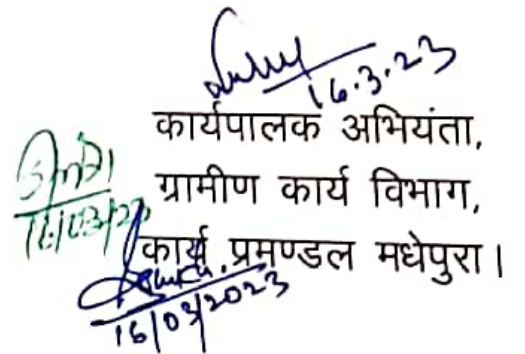 16.3.23
कार्यपालक अभियंता,
ग्रामीण कार्य विभाग,
कार्य प्रमण्डल मधेपुरा।
16/03/2023